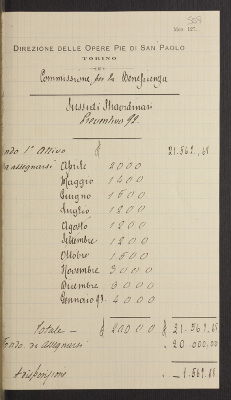 Mod. 127.
DIREZIONE DELLE OPERE PIE DI SAN PAOLO
TORINO
Commissione per la Beneficenza
Sussidi Straordinari
Preventivo 92.
Fondo 1° Attivo £ 21.569,68
da assegnarsi Aprile 2000
Maggio 1400
Giugno 1600
Luglio 1200
Agosto 1200
Settembre 1200
Ottobre 1500
Novembre 3000
Dicembre 3000
Gennaro 93. 4000
Totale - £ 20000 £ 21.569.68
Fondo da assegnarsi " 20 000,00
A disposizione - 1.569.68